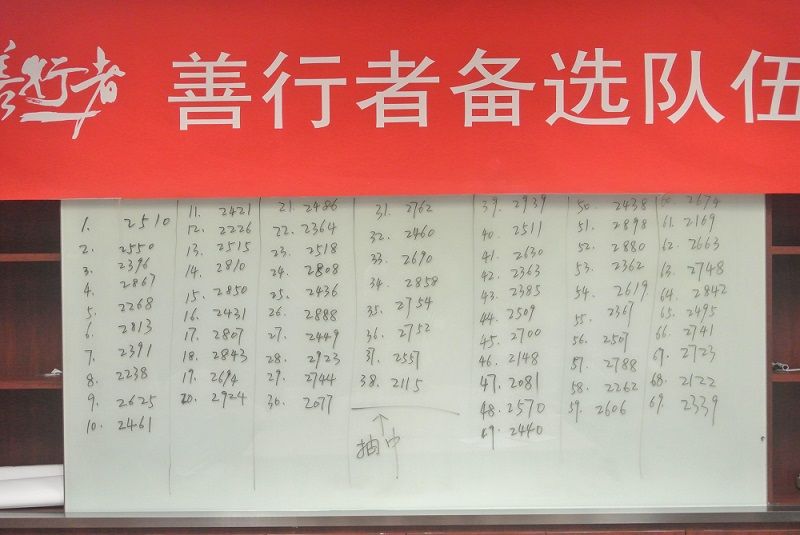 善行者
善行者备选队伍
1. 2510
2. 2550
3. 2396
4. 2867
5. 2268
6. 2813
7. 2391
8. 2238
9. 2625
10. 2461
11. 2421
12. 2226
13. 2515
14. 2810
15. 2850
16. 2431
17. 2807
18. 2843
19. 2694
20. 2924
21. 2486
22. 2364
23. 2518
24. 2808
25. 2436
26. 2888
27. 2449
28. 2923
29. 2744
30. 2077
31. 2762
32. 2460
33. 2690
34. 2858
35. 2754
36. 2752
37. 2557
38. 2115
抽中
39. 2939
40. 2511
41. 2630
42. 2363
43. 2385
44. 2509
45. 2700
46. 2148
47. 2081
48. 2570
49. 2440
50. 2438
51. 2898
52. 2880
53. 2362
54. 2619
55. 2367
56. 2507
57. 2788
58. 2262
59. 2606
60. 2674
61. 2169
62. 2663
63. 2748
64. 2842
65. 2495
66. 2741
67. 2723
68. 2122
69. 2339